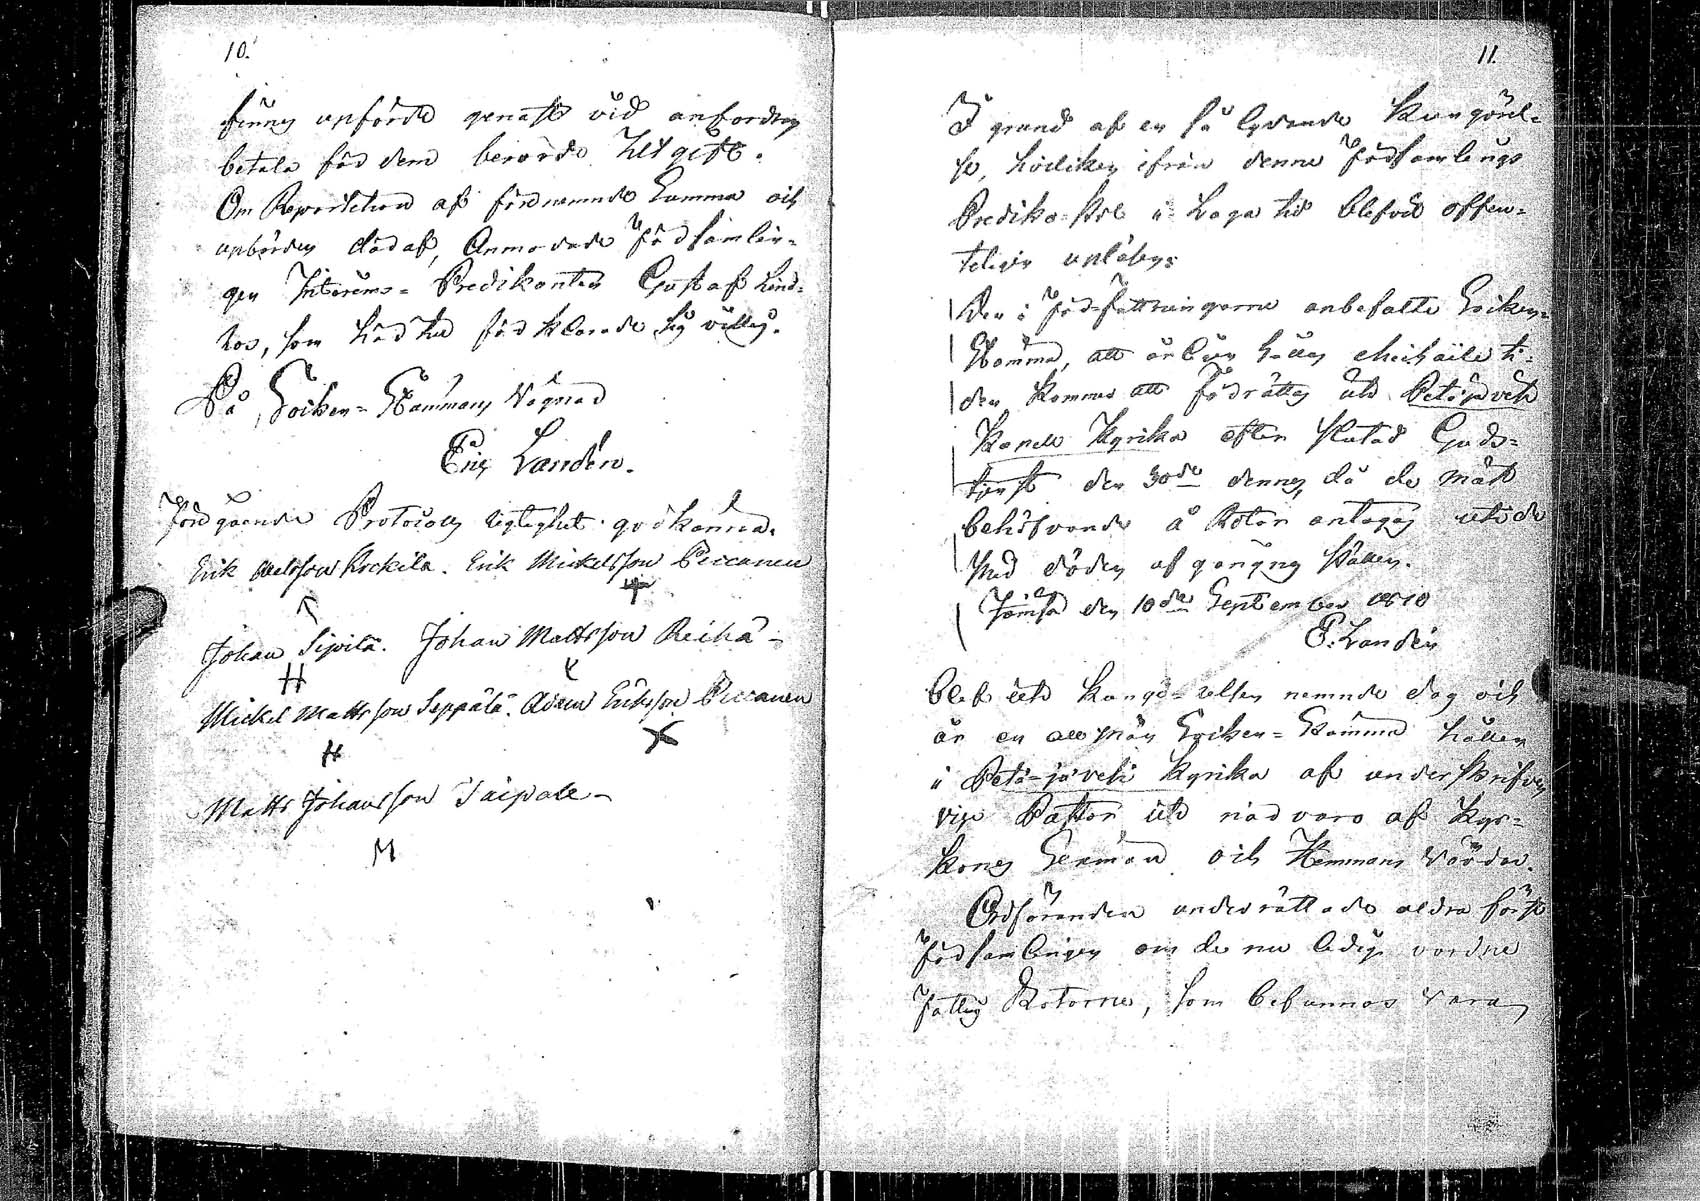 10.
finnes upförde genast vid anfordran
betala för dem berörde Utgift.
Om Repartition af förenemnde Summa och
upbörden däraf, Anmodade Församlin-
gen Interims-Predikanten Gustaf Lind-
ros, som härtil förklarade sig villig.
På Socken-Stämmans Vägnar
Eric Landén.
Föregående Protocolls rigtighet godkänna.
Erik Mickelsson Peccanen
Johan Sipilä. Johan Mattsson
Mickel Mattsson Seppälä. Adam Eriksson Peccanen
Matts Johansson Taipale
11.
I grund af en så lydande Kungörel-
se, hvilken ifrån denna Församlings
Predikostol i Laga tid blefvit offen-
teligen upläsen:
Den i Författningarne anbefalte Socken-
Stämma, att årligen hållas Michaili ti-
den kommer att förrättas uti Petäjävesi
Kapell Kyrka efter slutad Guds-
tjenst den 30de dennes, då de mäst
behöfvande å Rotar antagas uti de
med döden afgångnas ställen.
Jämsä den 10de September 1810
E. Landén
blef uti kungörelsen nemnde dag och
år en allmän Socken-Stämma hållen
i Petä-jävesi Kyrka af underskrifven
vice Pastor uti närvaro af Kyr-
kones Sexmän och Hemmans Värdar.
Ordföranden underrättade aldra först
Församlingen om de nu ledige vordne
Fattig Rotorne, som befunnos vara